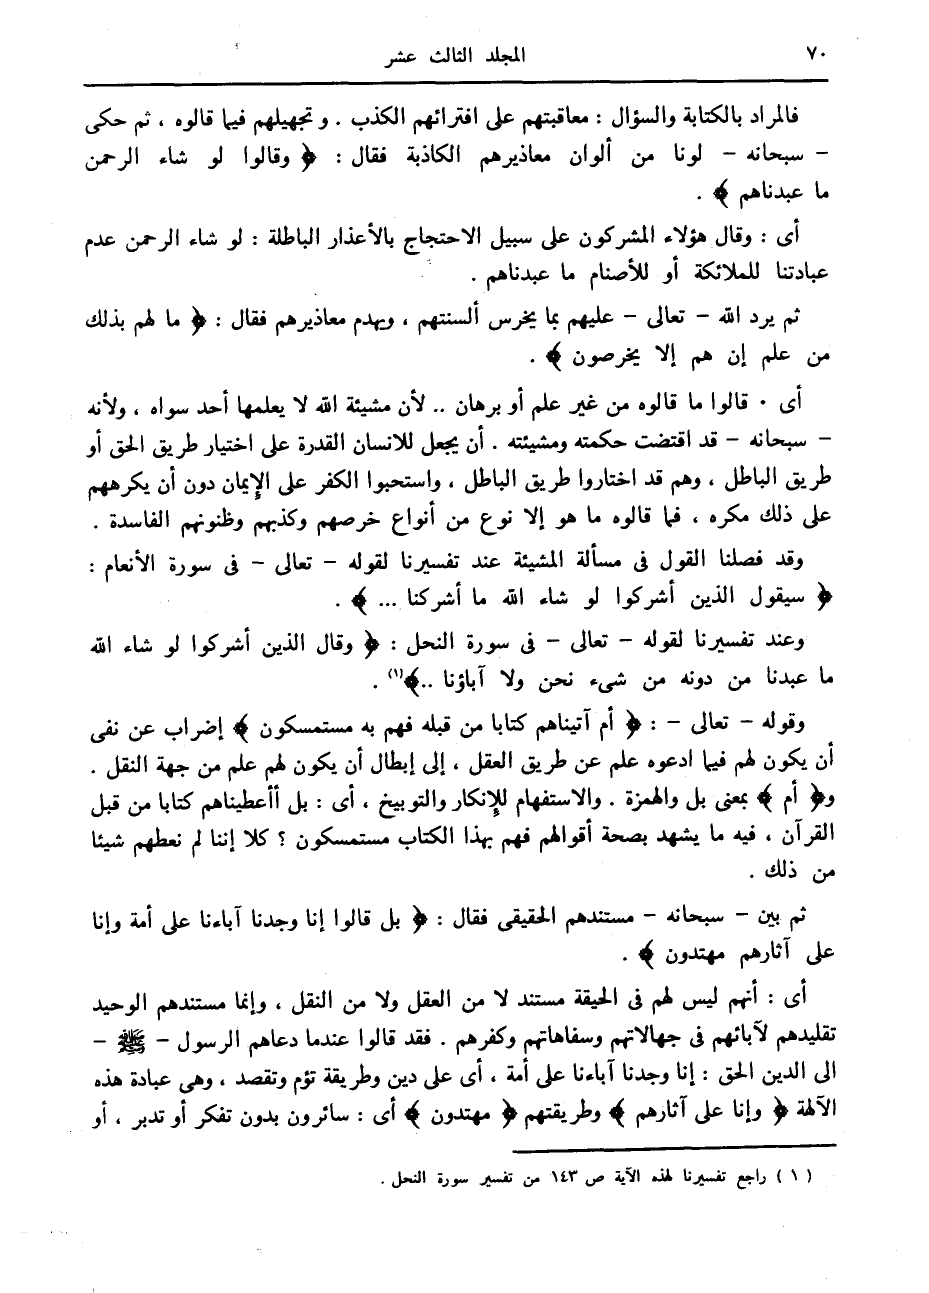 ٧٠ المجلد الثالث عشر
فالمراد بالكتابة والسؤال : معاقبتهم على افترائهم الكذب . وتجهيلهم فيما قالوه ، ثم حكى
– سبحانه – لونا من ألوان معاذيرهم الكاذبة فقال : ﴿ وقالوا لو شاء الرحمن
ما عبدناهم ﴾ .
أى : وقال هؤلاء المشركون على سبيل الاحتجاج بالأعذار الباطلة : لو شاء الرحمن عدم
عبادتنا للملائكة أو للأصنام ما عبدناهم .
ثم يرد الله – تعالى – عليهم بما يخرس ألسنتهم ، ويهدم معاذيرهم فقال : ﴿ ما لهم بذلك
من علم إن هم إلا يخرصون ﴾ .
أى ٠ قالوا ما قالوه من غير علم أو برهان .. لأن مشيئة الله لا يعلمها أحد سواه ، ولأنه
– سبحانه – قد اقتضت حكمته ومشيئته . أن يجعل للانسان القدرة على اختيار طريق الحق أو
طريق الباطل ، وهم قد اختاروا طريق الباطل ، واستحبوا الكفر على الإيمان دون أن يكرههم
على ذلك مكره ، فما قالوه ما هو إلا نوع من أنواع خرصهم وكذبهم وظنونهم الفاسدة .
وقد فصلنا القول فى مسألة المشيئة عند تفسيرنا لقوله – تعالى – فى سورة الأنعام :
﴿ سيقول الذين أشركوا لو شاء الله ما أشركنا ... ﴾ .
وعند تفسيرنا لقوله – تعالى – فى سورة النحل : ﴿ وقال الذين أشركوا لو شاء الله
ما عبدنا من دونه من شىء نحن ولا آباؤنا ..﴾(١) .
وقوله – تعالى – : ﴿ أم آتيناهم كتابا من قبله فهم به مستمسكون ﴾ إضراب عن نفى
أن يكون لهم فيما ادعوه علم عن طريق العقل ، إلى إبطال أن يكون لهم علم من جهة النقل .
و﴿ أم ﴾ بمعنى بل والهمزة . والاستفهام للإنكار والتوبيخ ، أى : بل أأعطيناهم كتابا من قبل
القرآن ، فيه ما يشهد بصحة أقوالهم فهم بهذا الكتاب مستمسكون ؟ كلا إننا لم نعطهم شيئا
من ذلك .
ثم بين – سبحانه – مستندهم الحقيقى فقال : ﴿ بل قالوا إنا وجدنا آباءنا على أمة وإنا
على آثارهم مهتدون ﴾ .
أى : أنهم ليس لهم فى الحيقة مستند لا من العقل ولا من النقل ، وإنما مستندهم الوحيد
تقليدهم لآبائهم فى جهالاتهم وسفاهاتهم وكفرهم . فقد قالوا عندما دعاهم الرسول – ﷺ –
الى الدين الحق : إنا وجدنا آباءنا على أمة ، أى على دين وطريقة تؤم وتقصد ، وهى عبادة هذه
الآلهة ﴿ وإنا على آثارهم ﴾ وطريقتهم ﴿ مهتدون ﴾ أى : سائرون بدون تفكر أو تدبر ، أو
( ١ ) راجع تفسيرنا لهذه الآية ص ١٤٣ من تفسير سورة النحل .